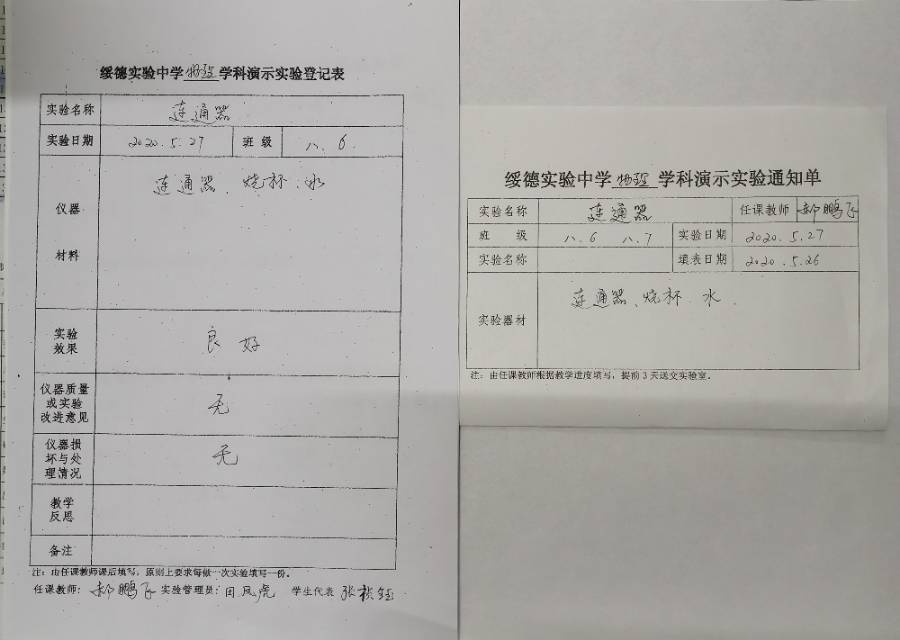 绥德实验中学物理学科演示实验登记表
实验名称 连通器
实验日期 2020.5.27 班级 八.6
仪器 材料 连通器、烧杯、水
实验效果 良好
仪器质量或实验改进意见 无
仪器损坏与处理情况 无
教学反思
备注
注:由任课教师课后填写,原则上要求每做一次实验填写一份。
任课教师:郝鹏飞 实验管理员:田凤虎 学生代表 张
绥德实验中学物理学科演示实验通知单
实验名称 连通器 任课教师 郝鹏飞
班 级 八.6 八.7 实验日期 2020.5.27
实验名称 填表日期 2020.5.26
实验器材 连通器、烧杯 水.
注:由任课教师根据教学进度填写,提前3天送交实验室。